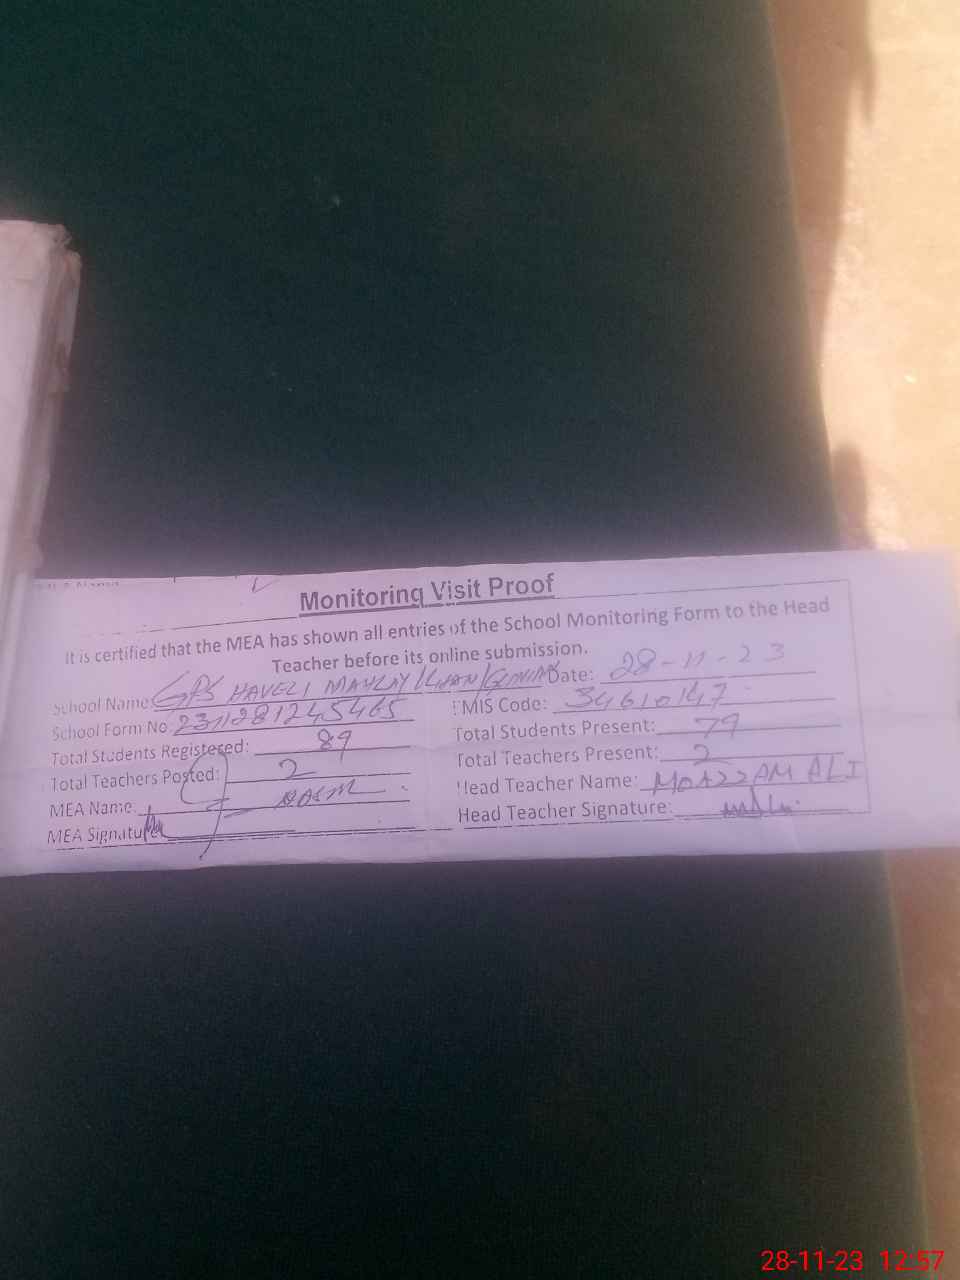 Monitoring Visit Proof
It is certified that the MEA has shown all entries of the School Monitoring Form to the Head
Teacher before its online submission.
School Name: GPS HAVELI Date: 28-11-23
School Form No 2311281245465 EMIS Code: 34610147
Total Students Registered: 89 Total Students Present: 79
Total Teachers Posted: 2 Total Teachers Present: 2
MEA Name: Head Teacher Name: MOAZZAM ALI
MEA Signature Head Teacher Signature:
28-11-23 12:57